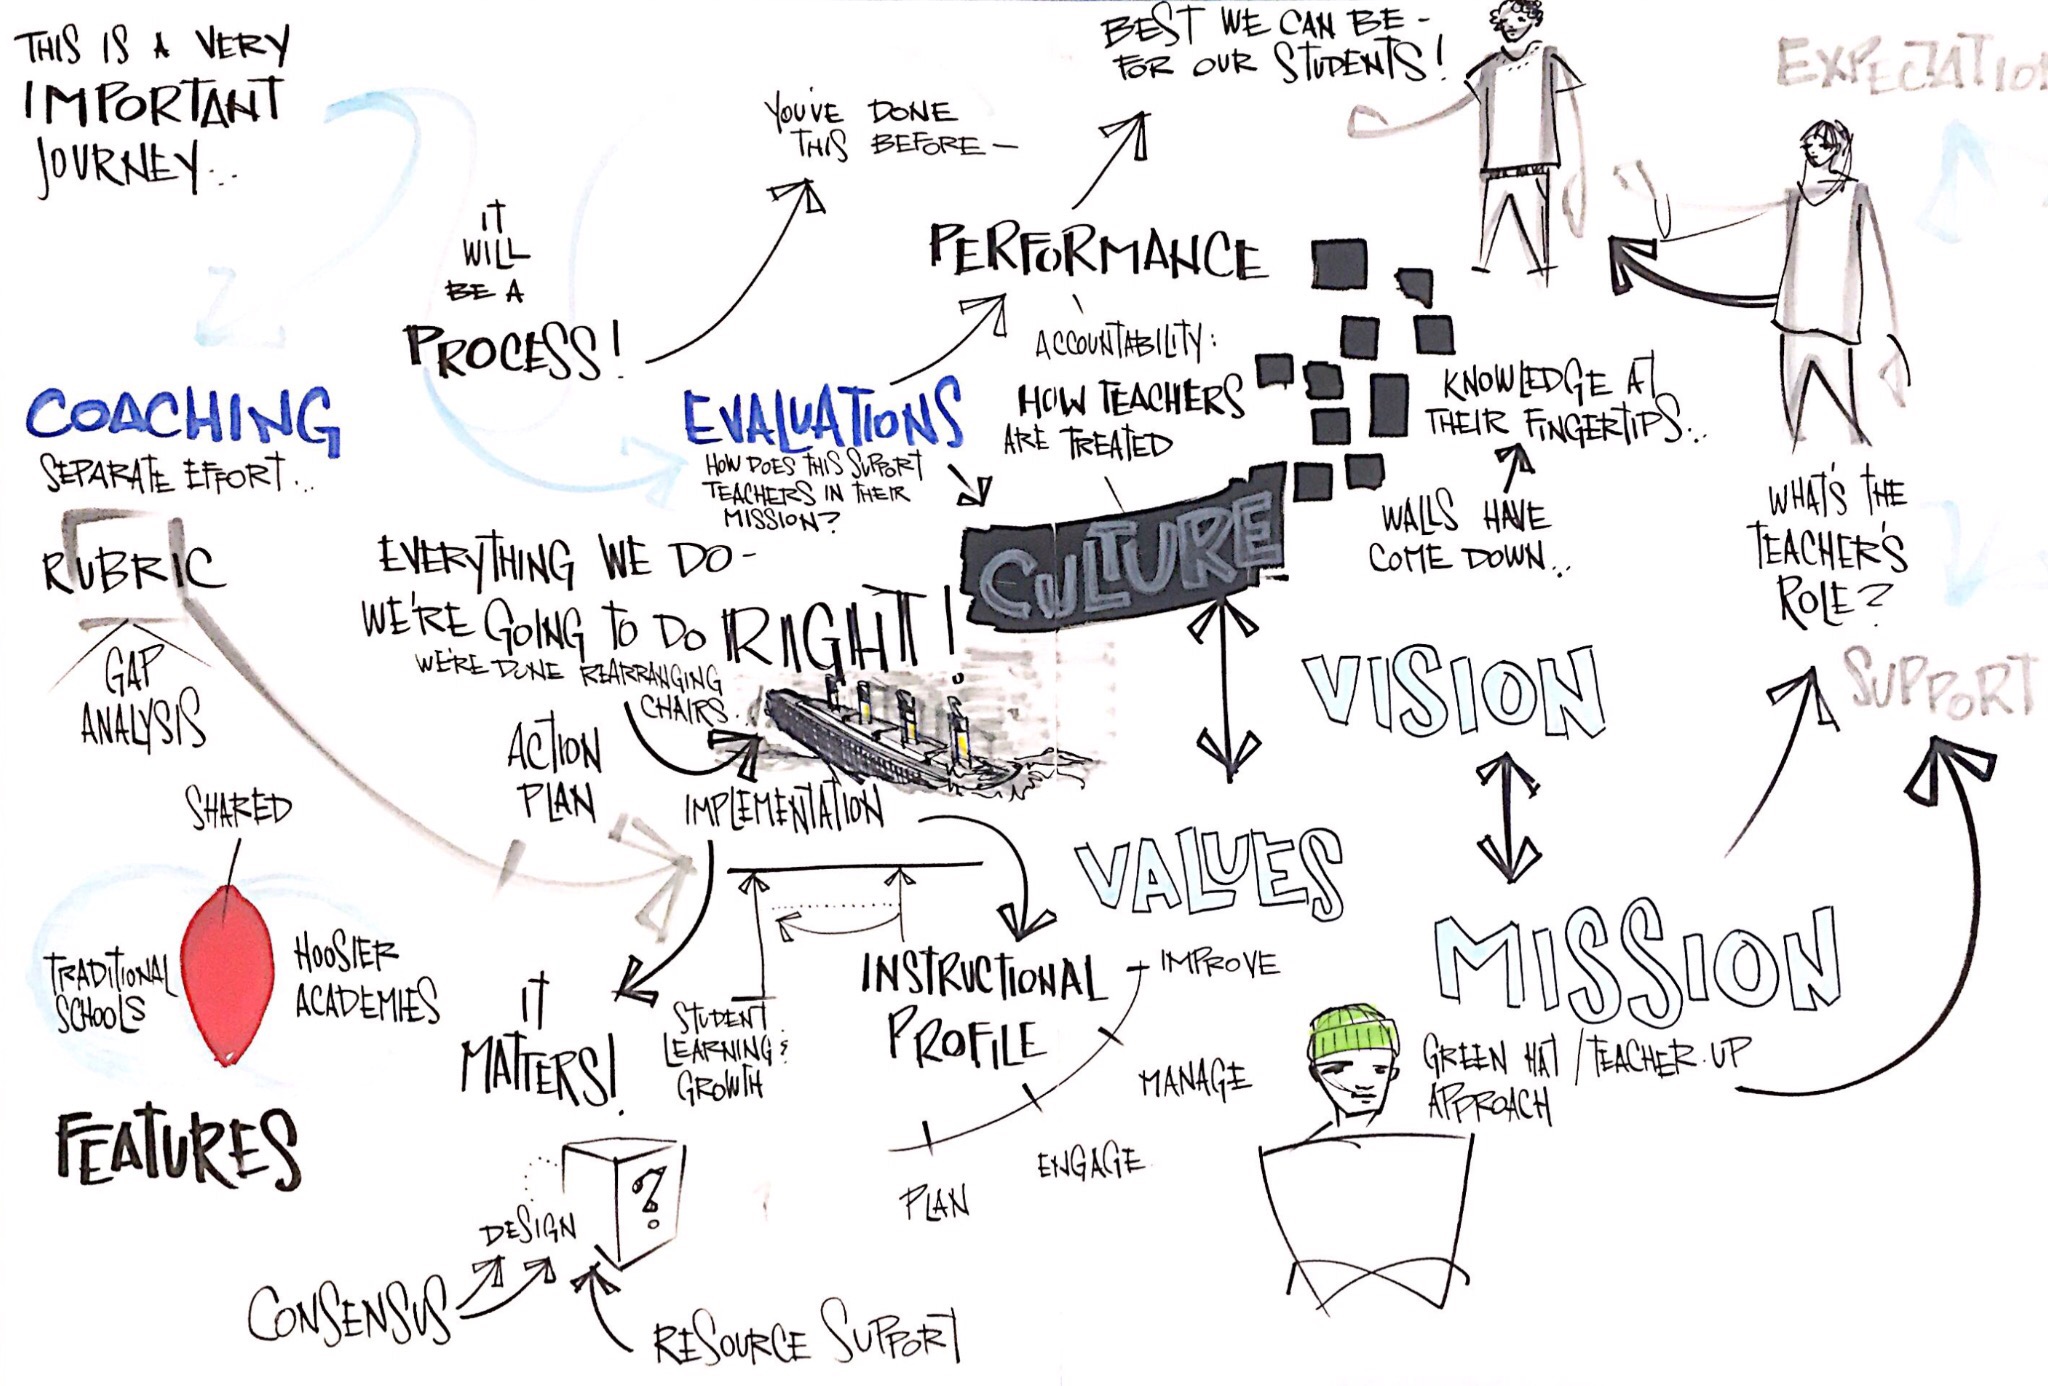 THIS IS A VERY
IMPORTANT
JOURNEY...
IT
WILL
BE A
PROCESS!
YOU'VE DONE
THIS BEFORE -
BEST WE CAN BE -
FOR OUR STUDENTS!
EXPECTATION
PERFORMANCE
ACCOUNTABILITY:
HOW TEACHERS
ARE TREATED
COACHING
SEPARATE EFFORT...
RUBRIC
GAP
ANALYSIS
EVALUATIONS
HOW DOES THIS SUPPORT
TEACHERS IN THEIR
MISSION?
CULTURE
KNOWLEDGE AT
THEIR FINGERTIPS...
WALLS HAVE
COME DOWN...
WHAT'S THE
TEACHER'S
ROLE?
SUPPORT
EVERYTHING WE DO -
WE'RE GOING TO DO RIGHT!
WE'RE DONE REARRANGING
CHAIRS...
ACTION
PLAN
IMPLEMENTATION
VISION
VALUES
MISSION
GREEN HAT / TEACHER-UP
APPROACH
SHARED
TRADITIONAL
SCHOOLS
HOOSIER
ACADEMIES
FEATURES
IT
MATTERS!
STUDENT
LEARNING &
GROWTH
INSTRUCTIONAL
PROFILE
IMPROVE
MANAGE
ENGAGE
PLAN
DESIGN
?
CONSENSUS
RESOURCE SUPPORT